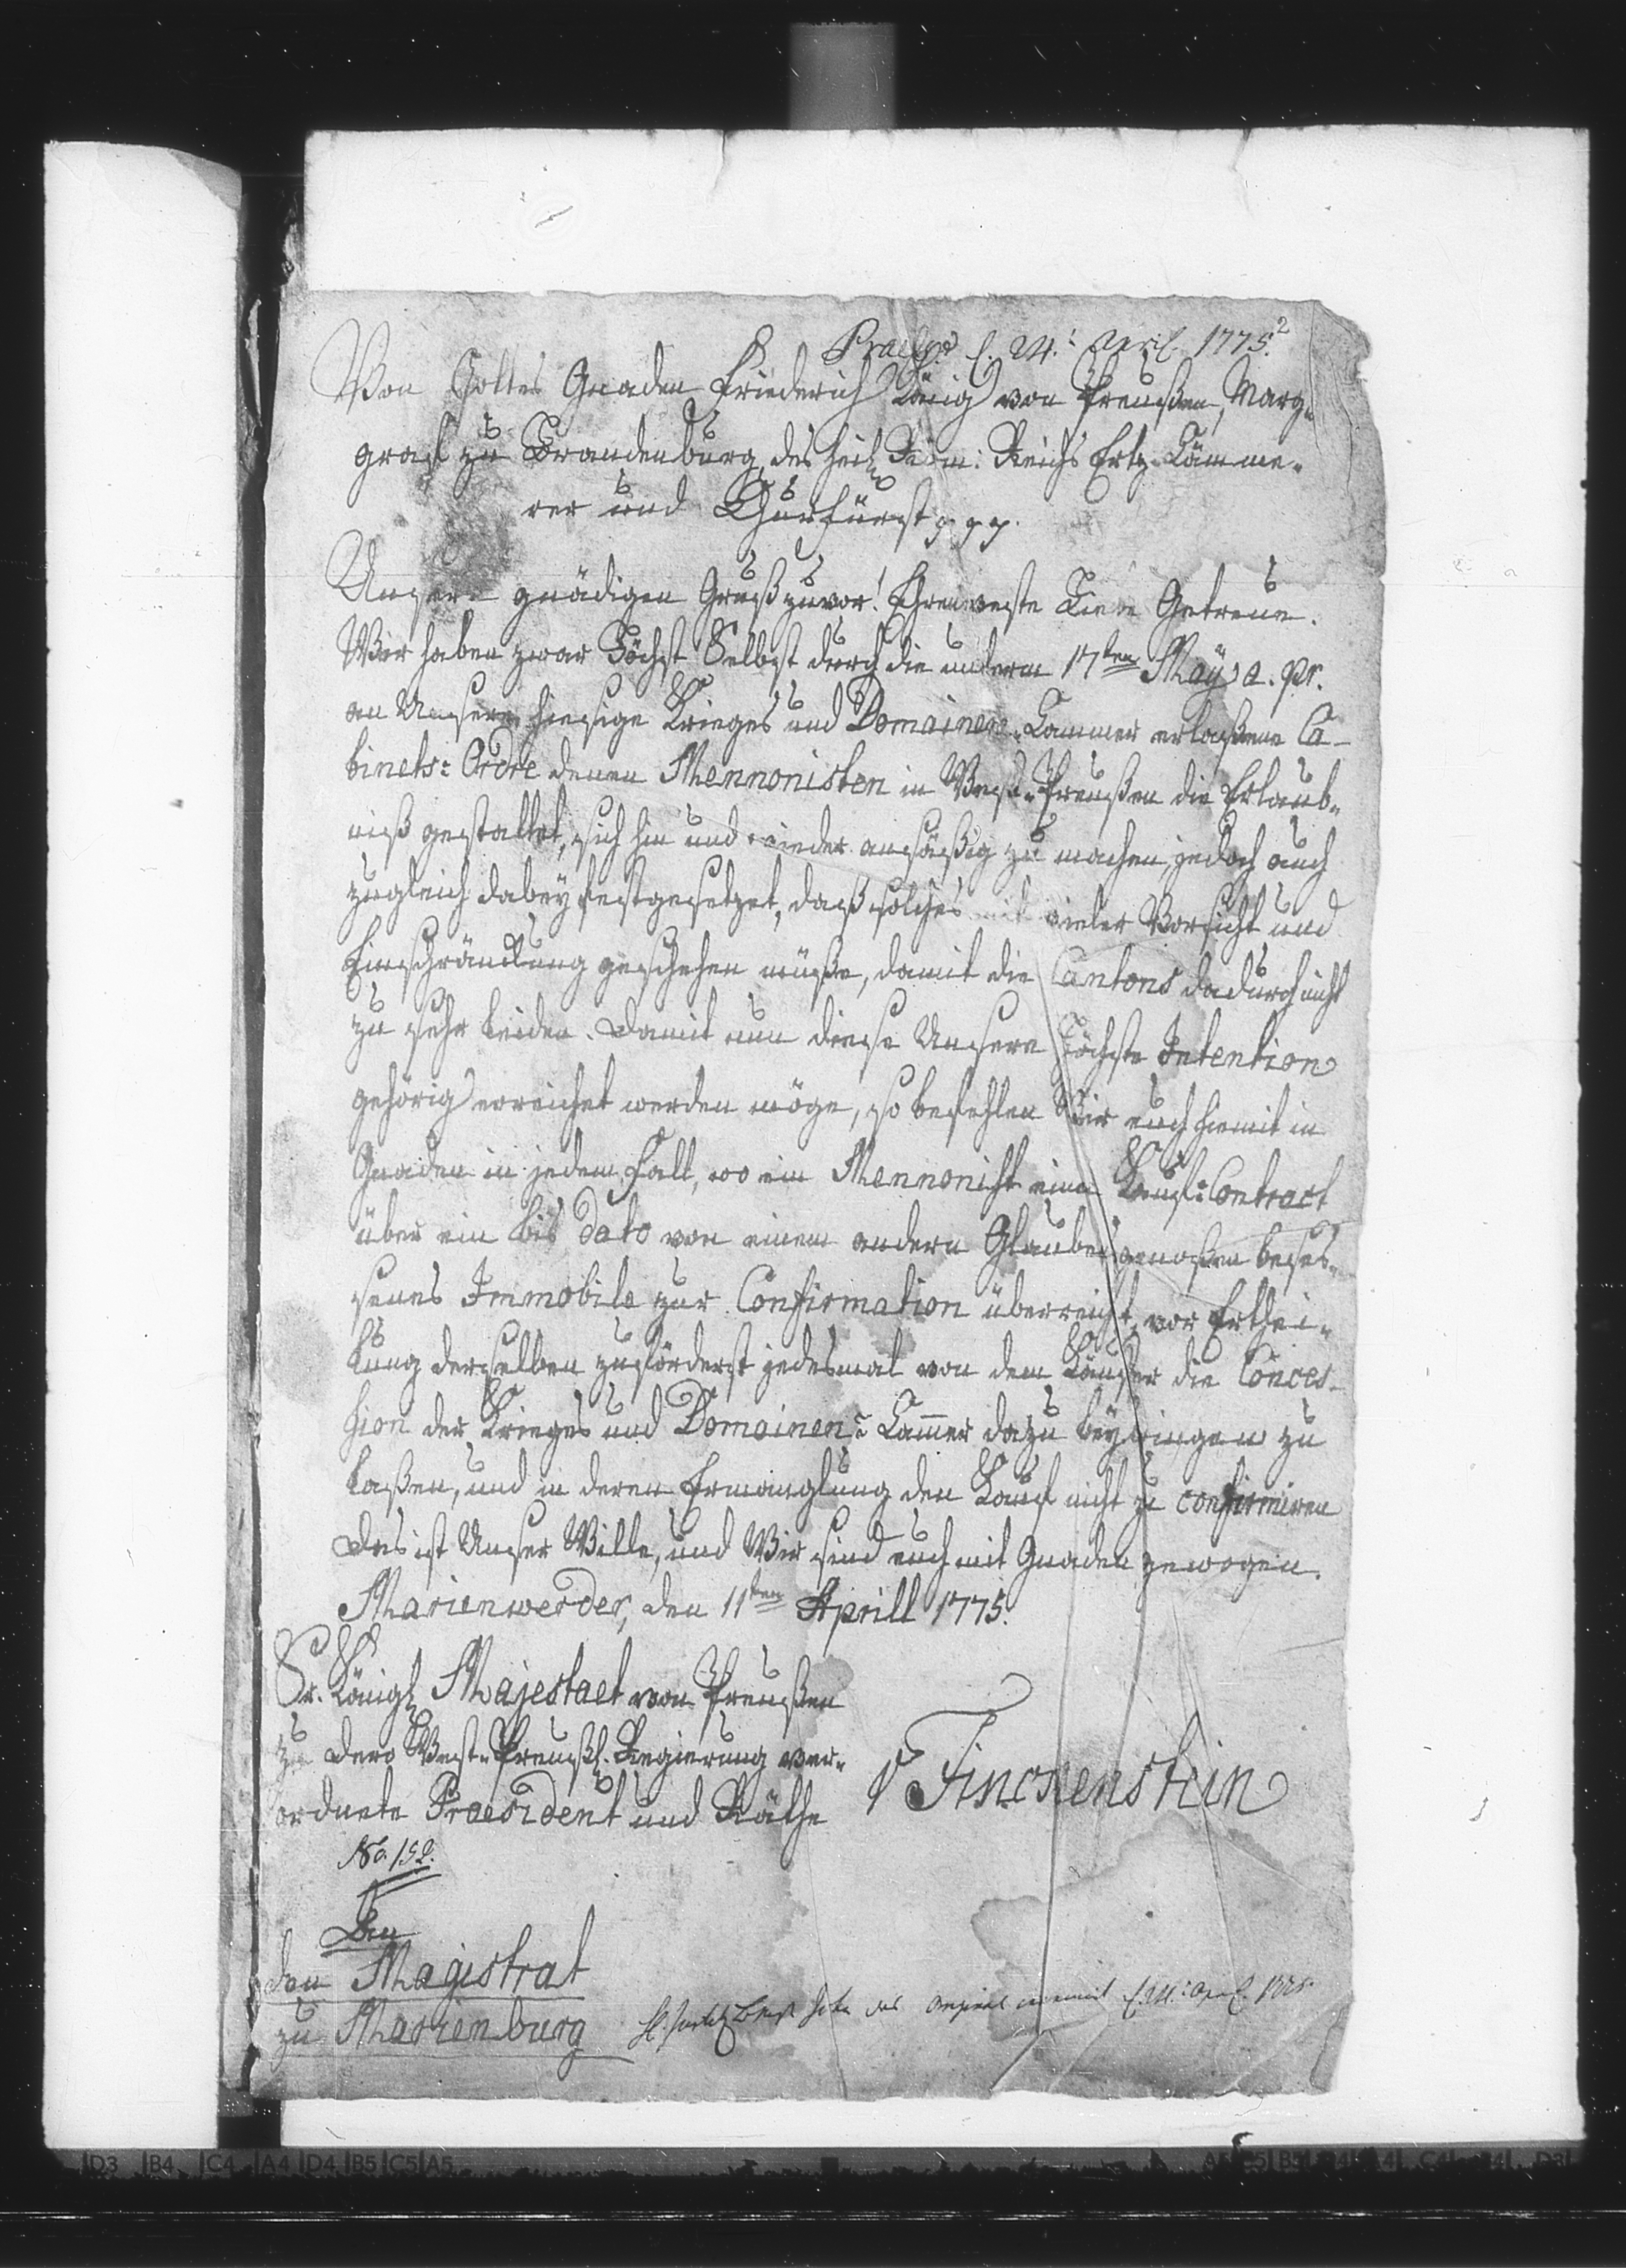 d. 24. April. 1775.
2
Von Gottes Gnaden Friederich König von Preußen, Marg-
graf zu Brandenburg, des heil. Röm: Reichs Ertz-Cämme-
rer und Churfürst p. p. p.
Unsern gnädigen Gruß zuvor! Ehrenveste Liebe Getreue.
Wir haben zwar Höchst Selbst durch die unterm 17ten May a. pr.
an Unsere hiesige Krieges und Domainen-Cammer erlaßene Ca-
binets-Ordre denen Mennonisten in West-Preußen die Erlaub-
niß gestattet, sich hin und wieder ansäßig zu machen, jedoch auch
zugleich dabey festgesetzet, daß solches mit vieler Vorsicht und
Einschränckung geschehen müße, damit die Cantons dadurch nicht
zu sehr leiden. Damit nun diese Unsere Höchste Intention
gehörig erreichet werden möge, so befehlen Wir euch hiemit in
Gnaden in jedem Fall, wo ein Mennonist einen Kauf-Contract
über ein bis dato von einem andern Glaubensgenoßen beses-
senes Immobile zur Confirmation überreicht, vor Erthei-
lung derselben zuförderst jedesmal von dem Käufer die Conces-
sion der Krieges und Domainen-Cammer dazu beybringen zu
laßen, und in deren Ermanglung den Kauf nicht zu confirmiren
Das ist Unser Wille, und Wir sind euch mit Gnaden gewogen.
Marienwerder, den 11ten Aprill 1775.
Sr. Königl. Majestaet von Preußen
zu Dero West-Preußl. Regierung ver-
ordnete Praesident und Räthe
v Finckenstein
No. 152.
An
den Magistrat
zu Marienburg
das Original d. 24. Apr. 1775.